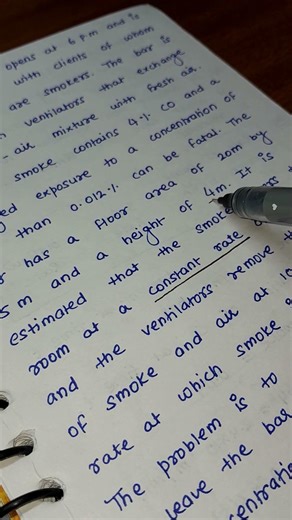 opens at 6 P.m and is
with clients of whom
are smokers. The bar is
ventilators that exchange
- air mixture with fresh air.
smoke contains 4% CO and a
exposure to a concentration of
than 0.012% can be fatal. The
has a Floor area of 20m by
5 m and a height of 4m. It is
estimated that the smoke
room at a constant rate
and the ventilators remove
of smoke and air at
rate at which smoke
The problem is to
leave the bar